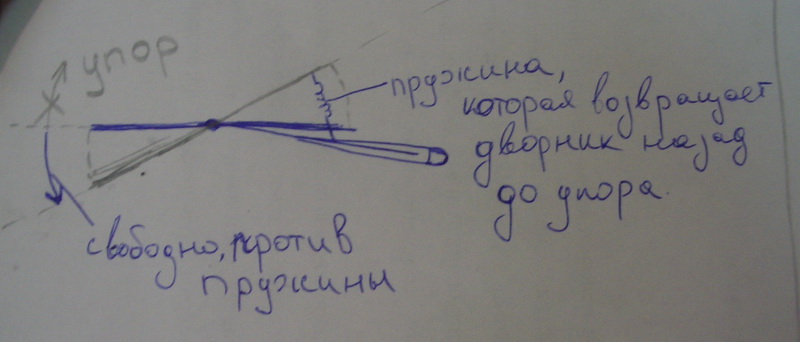 упор
пружина,
которая возвращает
дворник назад
до упора.
свободно, против
пружины